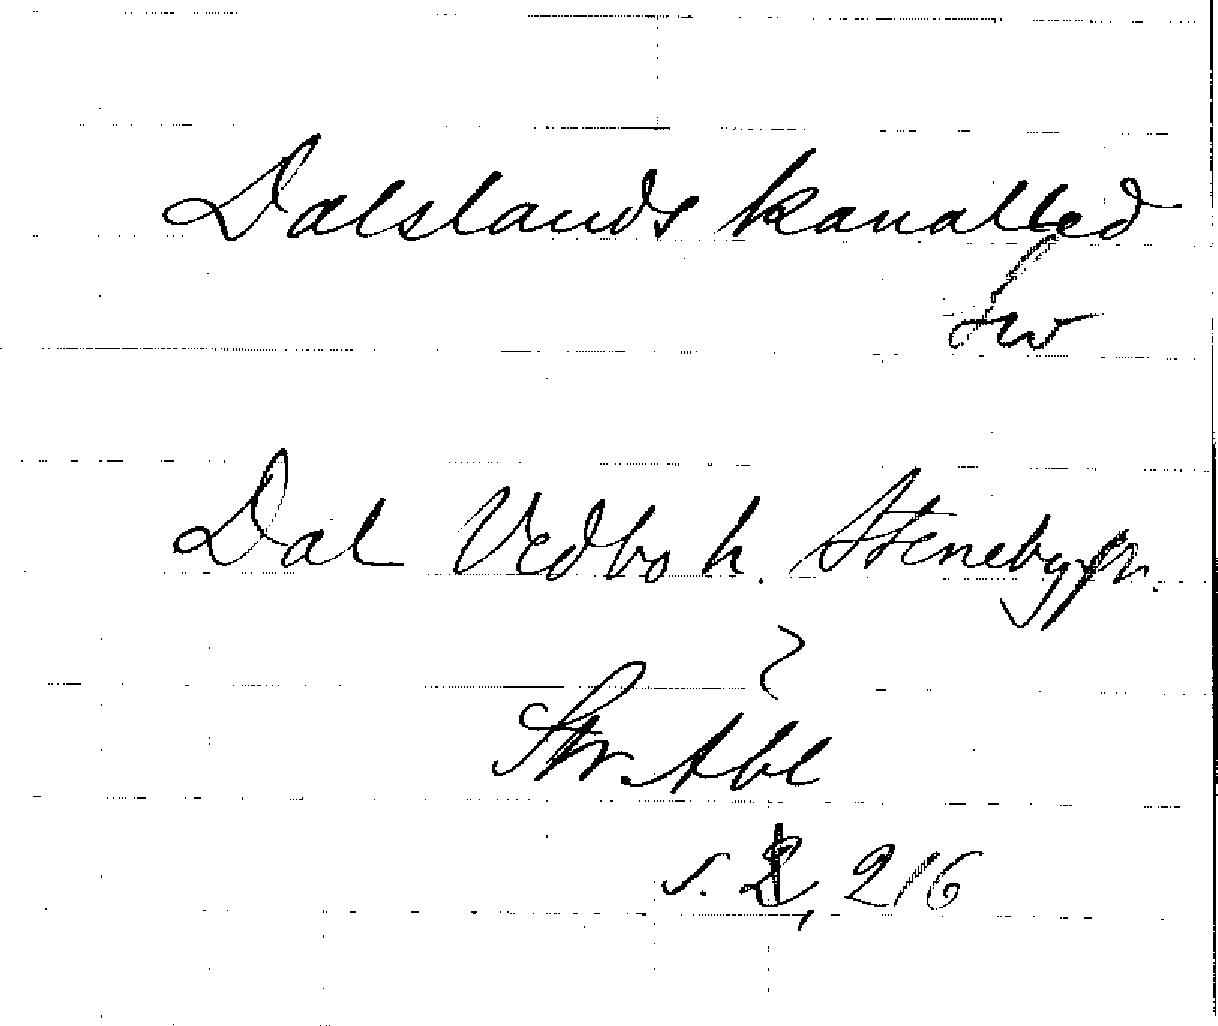 Dalslands kanalled
Dal Vedbo h. Steneby sn.
Str. Abl
s. 1, 216